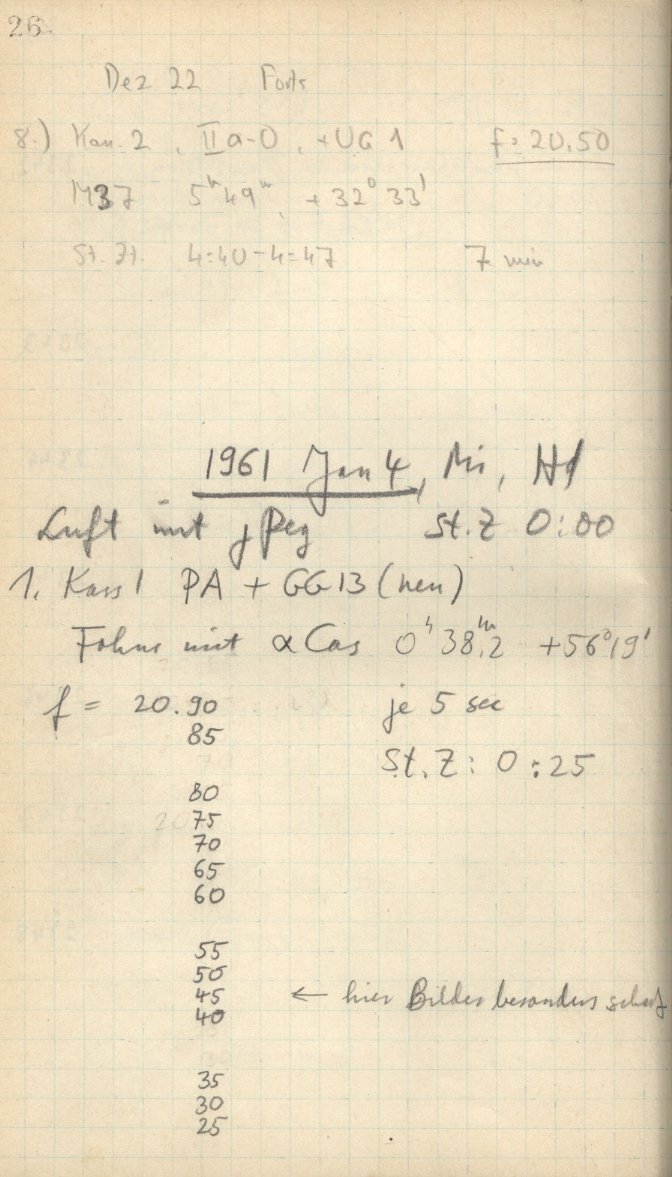 26
Dez 22 Forts
8.) Kass. 2, IIa-O, +UG 1 f = 20.50
M37 5ʰ49ᵐ, +32°33'
St. Zt. 4:40-4:47 7 min
1961 Jan 4, Mi,
Luft mit γ Peg St.Z 0:00
1. Kass 1 PA + GG13 (neu)
mit α Cas 0ʰ38ᵐ.2 +56°19'
f = 20.90 je 5 sec
85
St.Z: 0:25
80
75
70
65
60
55
50
45 ← hier Bilder besonders scharf
40
35
30
25